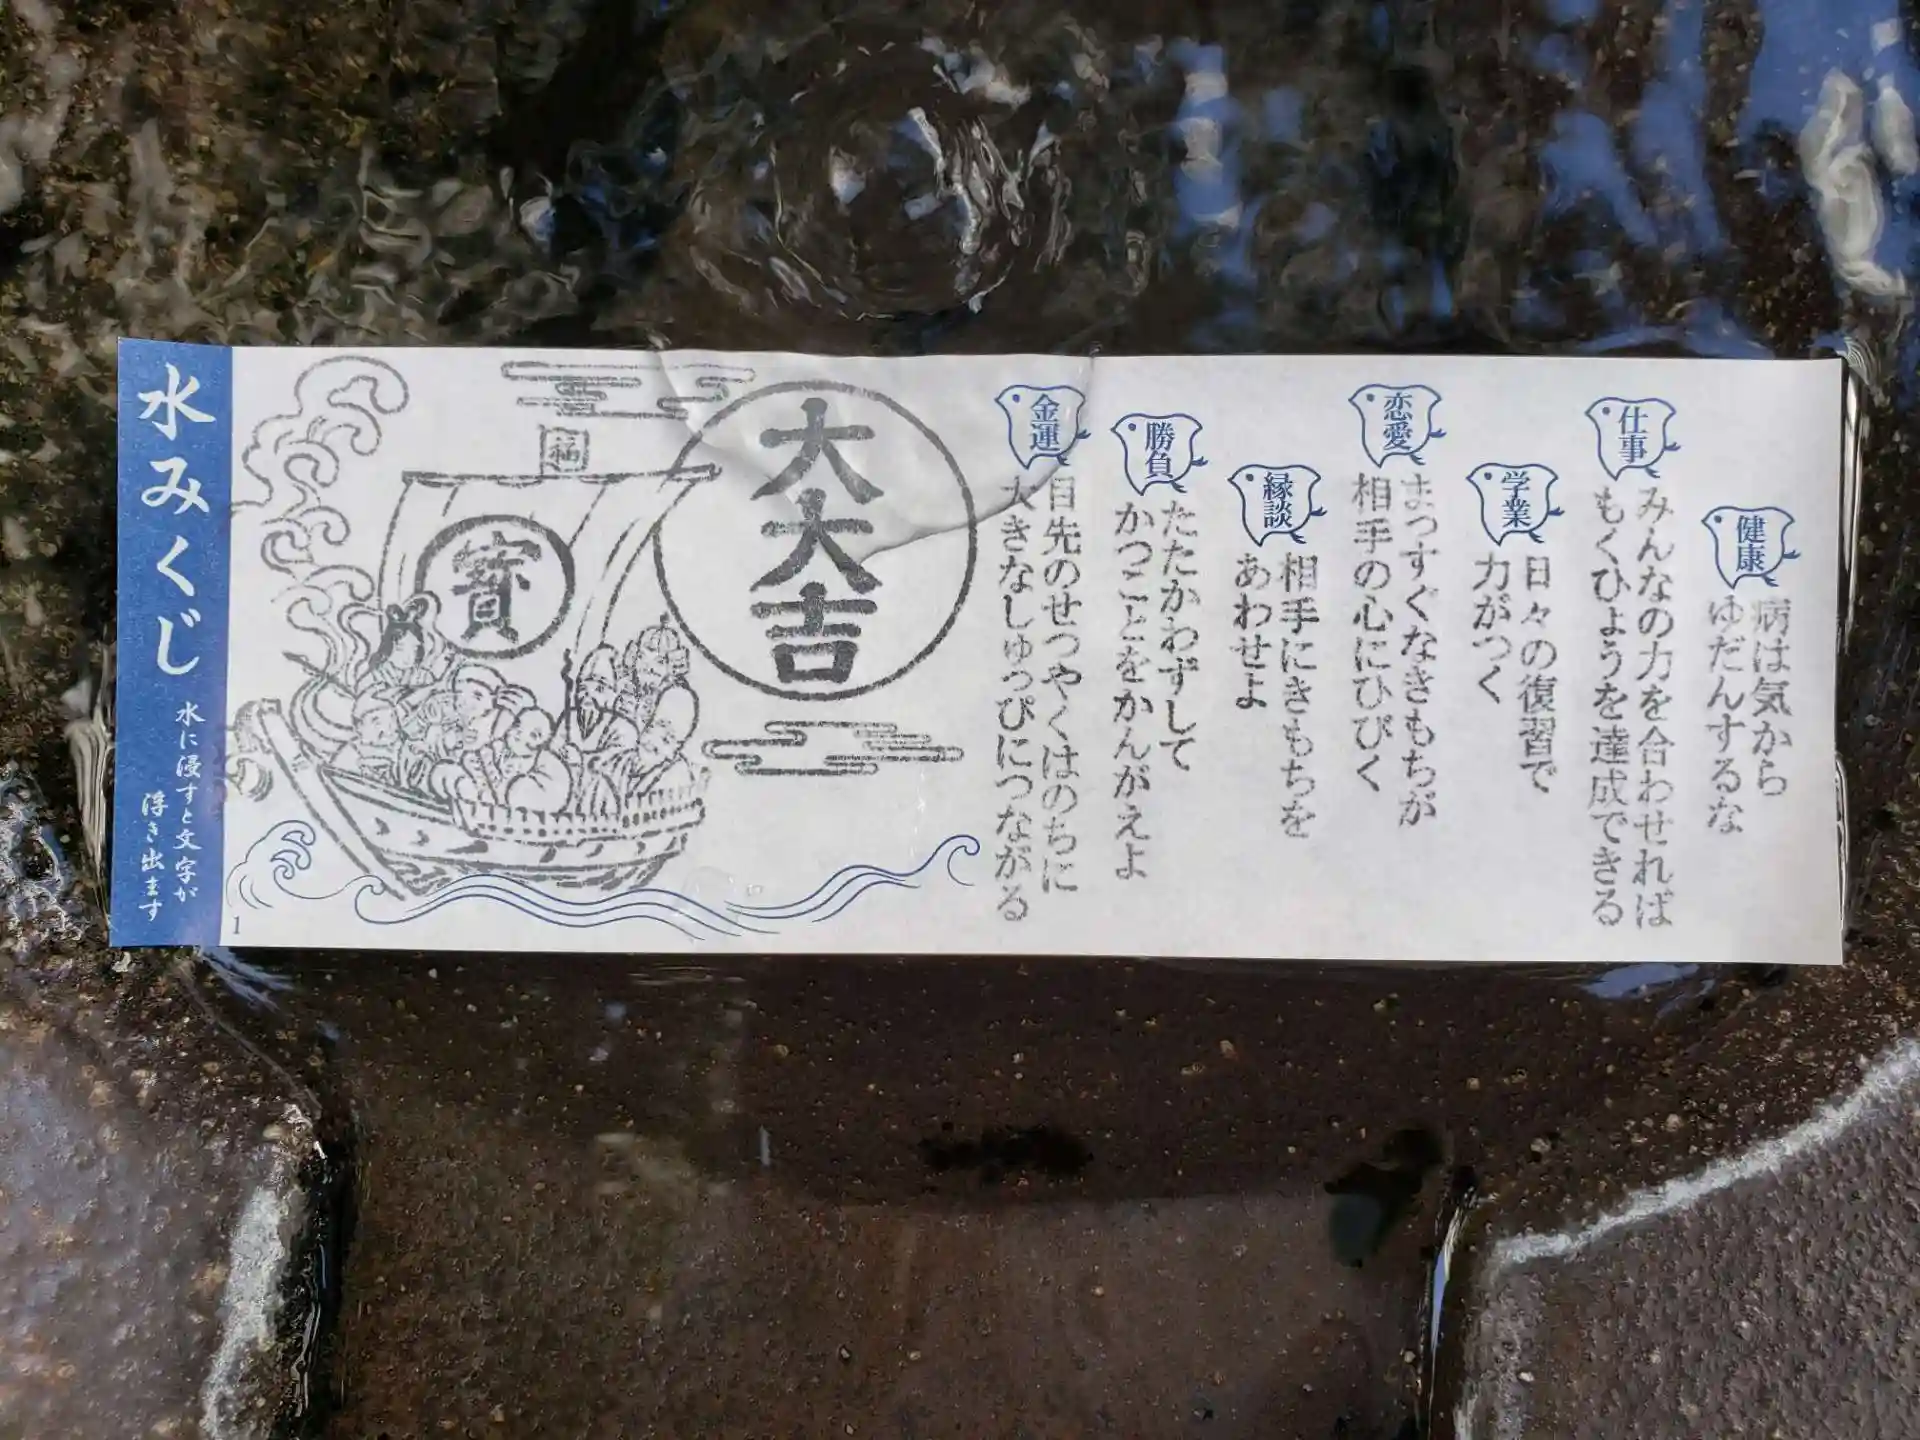 水みくじ
水に浸すと文字が
浮き出ます
1
福
寳
大大吉
健康
病は気から
ゆだんするな
仕事
みんなの力を合わせれば
もくひょうを達成できる
学業
日々の復習で
力がつく
恋愛
まっすぐなきもちが
相手の心にひびく
縁談
相手にきもちを
あわせよ
勝負
たたかわずして
かつことをかんがえよ
金運
目先のせつやくはのちに
大きなしゅっぴにつながる